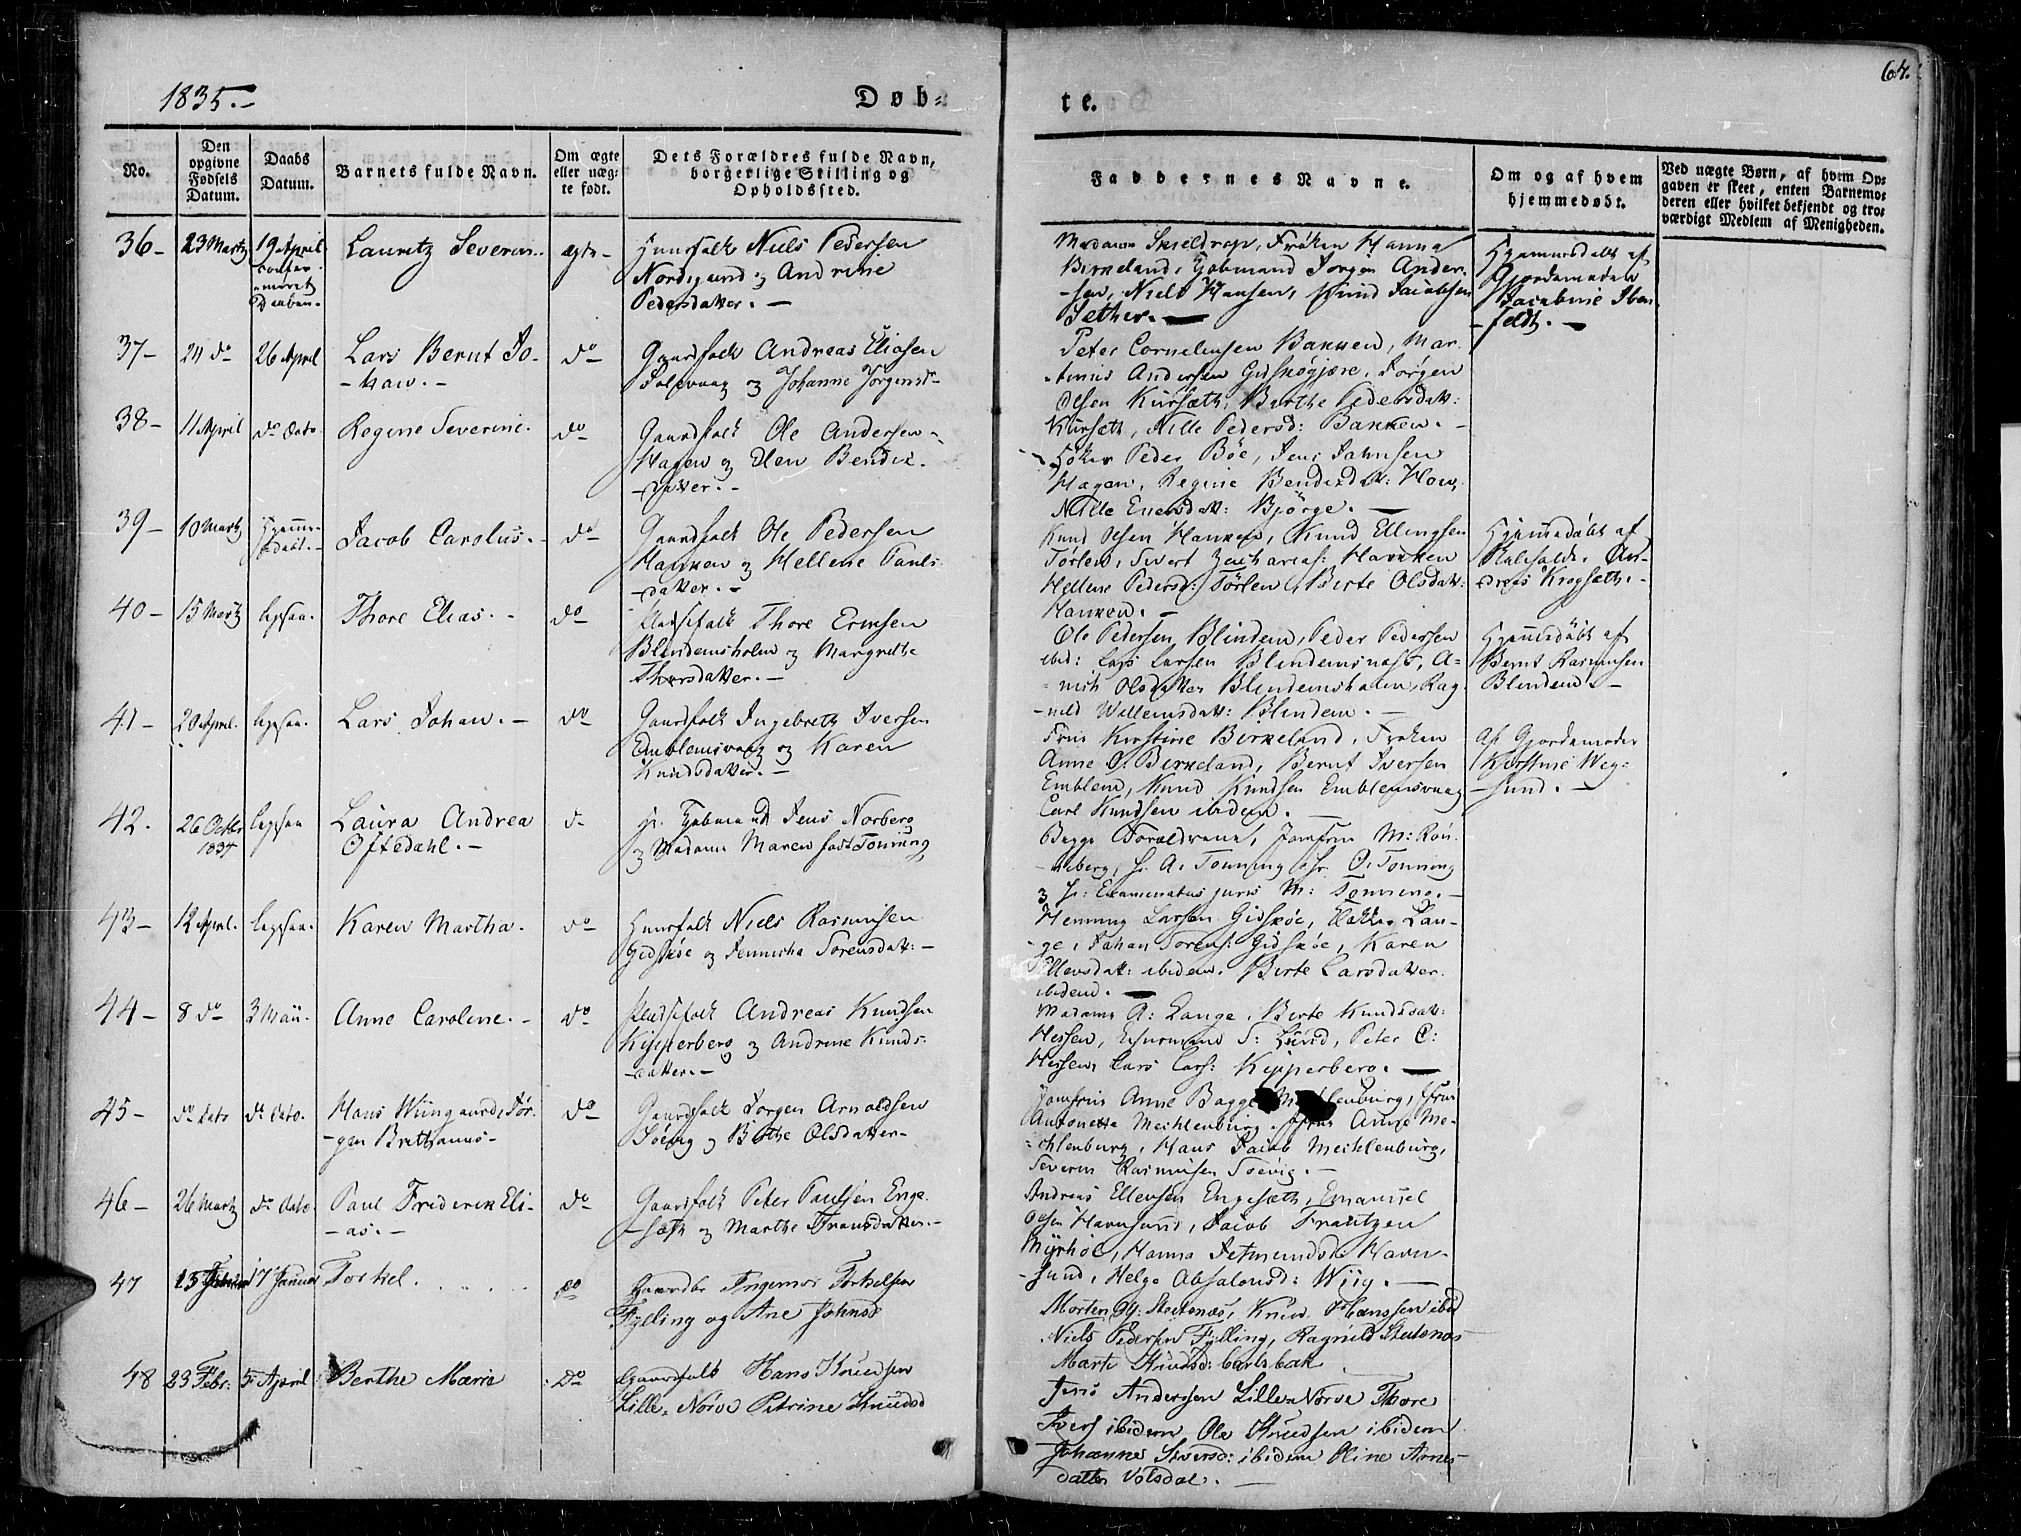 1835.-
Døb=
te.
64.
No.
Den
opgivne
Fødsels
Datum.
Daabs
Datum.
Barnets fulde Navn.
Om ægte
eller uæg-
te født.
Dets Forældres fulde Navn,
borgerlige Stilling og
Opholdssted.
Faddernes Navne.
Om og af hvem
hjemmedøbt.
Ved uægte Børn, af hvem Op-
gaven er skeet, enten Barnemo-
deren eller hvilket bekjendt og tro-
værdigt Medlem af Menigheden.
36- 23 Martz 19 April Lauritz Severin. ægte- Niels Pedersen
Daaben.
Nordsgund og Andrine
Pedersdatter. -
Madame Skieldrop, Frøken Hanna
Birkeland, Jørgen Ander-
-sen, Niels Hansen, Knud Jacobsen
Sether. -
Gjordemoder
Jacobine Iben
-feldt. -
37- 24 do 26 April Lars Bernt Jo-
-han. -
do Gaardfolk Andreas Eliasen
og Johanne Jørgensd-
Peter Corneliusen Bakken, Mar-
-tinus Andersen Gidskøgjære, Jørgen
Olsen Kursæth, Berthe Pedersdatt:
Kursæth, Nille Pedersd: Bakken. -
38- 11 April do Dato. Regine Severine. do Gaardfolk Ole Andersen
Hagen og Elen Bendix-
-datter. -
Peder Böe, Jens Johnsen
Hagen, Regine Bendixdatt: How,
Nille Eversdatt: Björge. -
39- 10 Martz Jacob Carolus. - do Gaardfolk Ole Pedersen
Hanken og Hellene Pauls-
-datter. -
Knud Olsen Hanken, Knud Ellingsen
Tørlen, Sivert Zacharias: Hanken
Hellene Pedersd: Tørlen, Berte Olsdatt:
Hanken. -
Hjemmedøbt af
An-
-dreas Krogsæth. -
40- 15 Martz ligesaa. Thore Elias. - do Thore Ericksen
Blindemsholm og Margrethe
Thorsdatter. -
Ole Pedersen Blindem, Peder Pedersen
ibid: Lars Larsen Blindemsnæs, A-
Olsdatter Blindemsholm, Rag-
-nild Willemsdatt: Blindem. -
Hjemmedøbt af
Bernt Rasmusen
Blindem. -
41- 20 April. ligesaa. Lars Johan. - do Gaardfolk Ingebreth Iversen
Emblemsvaag og Karen
Knudsdatter. -
Frue Kirstine Birkeland, Frøken
Anne O. Birkeland, Bernt Iversen
Emblem, Knud Knudsen Emblemsvaag
Carl Knudsen ibidem.
Af Gjordemoder
Kirstine Weg-
-sund. -
42. 26 Octbr
1834
ligesaa Laura Andrea
Oftedahl. -
Jens Norberg
og Madame Maren født Tonning,
Begge Forældrene, Jomfrue M:
A: Tonning, Hr. O: Tonning
Hr: Examinatus juris M: Tonning. -
43- 12 April. ligesaa. Karen Martha. do Niels Rasmusen
Gidskøe og Jennicha Sørensdatt: -
Henning Larsen Gidskøe, Lan-
-ge, Johan Sørens: Gidskøe, Karen
Ellevsdatt: ibidem. Berte Larsdatter
ibidem. -
44- 8 do 3 Maii. Anne Caroline. - do Andreas Knudsen
Kipperberg og Andrine Knuds-
-datter. -
Madame A: Lange, Berte Knudsdatt:
Hessen, S: Lund, Peter C:
Hessen, Lars Lars: Kipperberg. -
45- do Dato do Dato. Hans Wiingaard Jør-
-gen Britthanus-
do Gaardfolk Jørgen Arnoldsen
Söevig og Bethe Olsdatter-
Jomfrue Anne Bagge Mechlenburg, Frue
Antonette Mechlenburg, Anne Me-
-chlenburg, Hans Jacob Mechlenburg,
Severin Rasmusen Soevig. -
46- 26 Martz do Dato. Paul Friderik Eli-
-as. -
do Gaardfolk Peter Paulsen Enge-
-sæth og Marthe Fransdatter. -
Andreas Ellevsen Engesæth, Emanuel
Olsen Havnsund, Jacob Frantzen
Myrhöl, Hanna Jetmundsd: Havn-
-sund, Helge Absalonsd: Wiig. -
47 17 Januar Torkel. do Ingemar Torkelsen
Fylling og Ane Johnsd
Morten Stutsnæs, Knud Hanssen ibid
Niels Pedersen Fylling, Ragnild Stutsnæs
Marte Knudsd: Carlsbak
48 23 Febr: 5 April Berthe Marie do Gaardfolk Hans Knudsen
Lille-Nørve Petrine Knudsd
Jens Anderssen Lille-Nørve Thore
Ivers ibidem Ole Knudsen ibidem
Johanne Siversd: ibidem Oline Arnes-
datter Volsdal. -